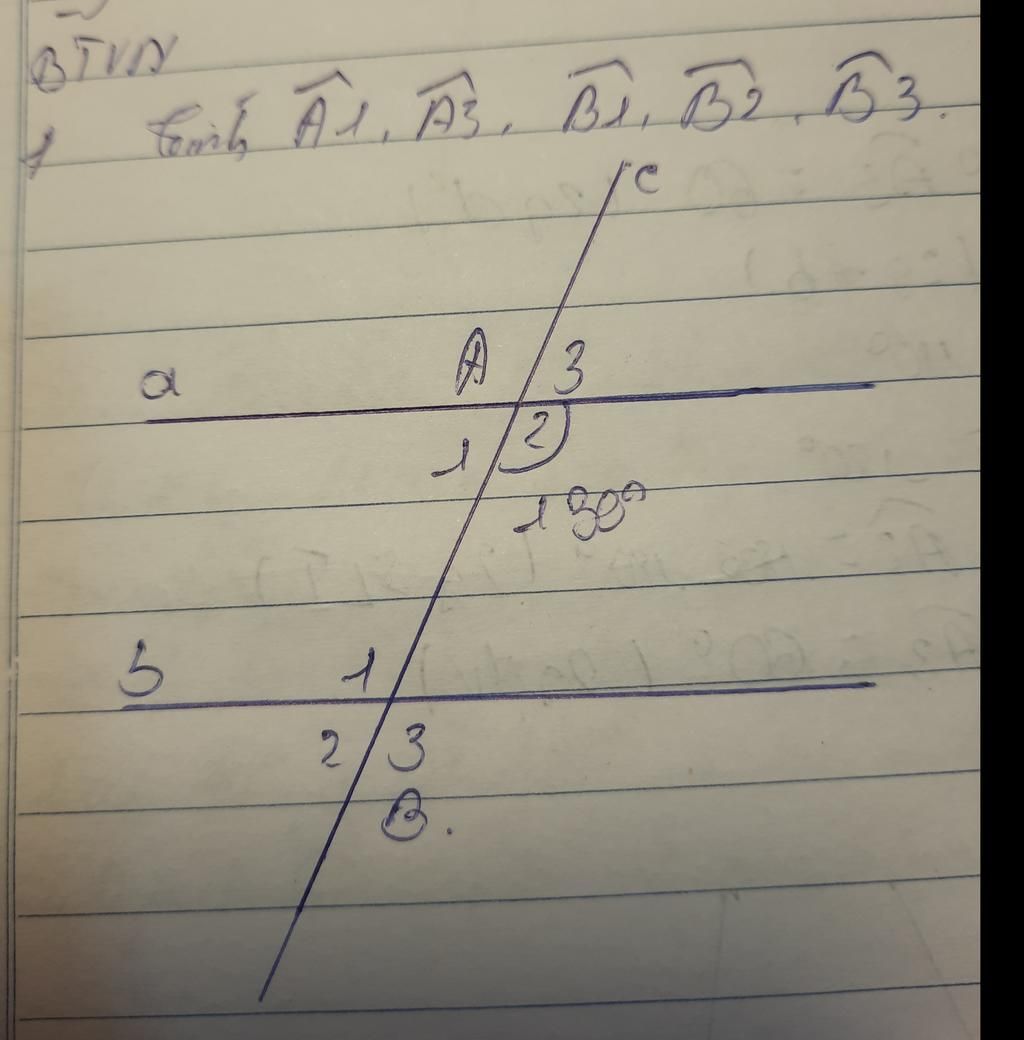 BTVN
1 Tính Â1, Â3, B̂1, B̂2, B̂3.
c
A 3
a
1 2
130°
b 1
2 3
B.